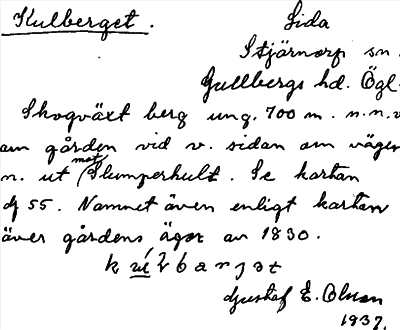 Kulberget. Sida
Stjärnorp sn.
Gullbergs hd. Ögl.
Skogväxt berg ung. 700 m. n.n.v
om gården vid v. sidan om vägen
n. ut mot Slumperhult. Se kartan
dj 55. Namnet även enligt kartan
över gårdens ägor av 1830.
Gustaf E. Olsson
1937.